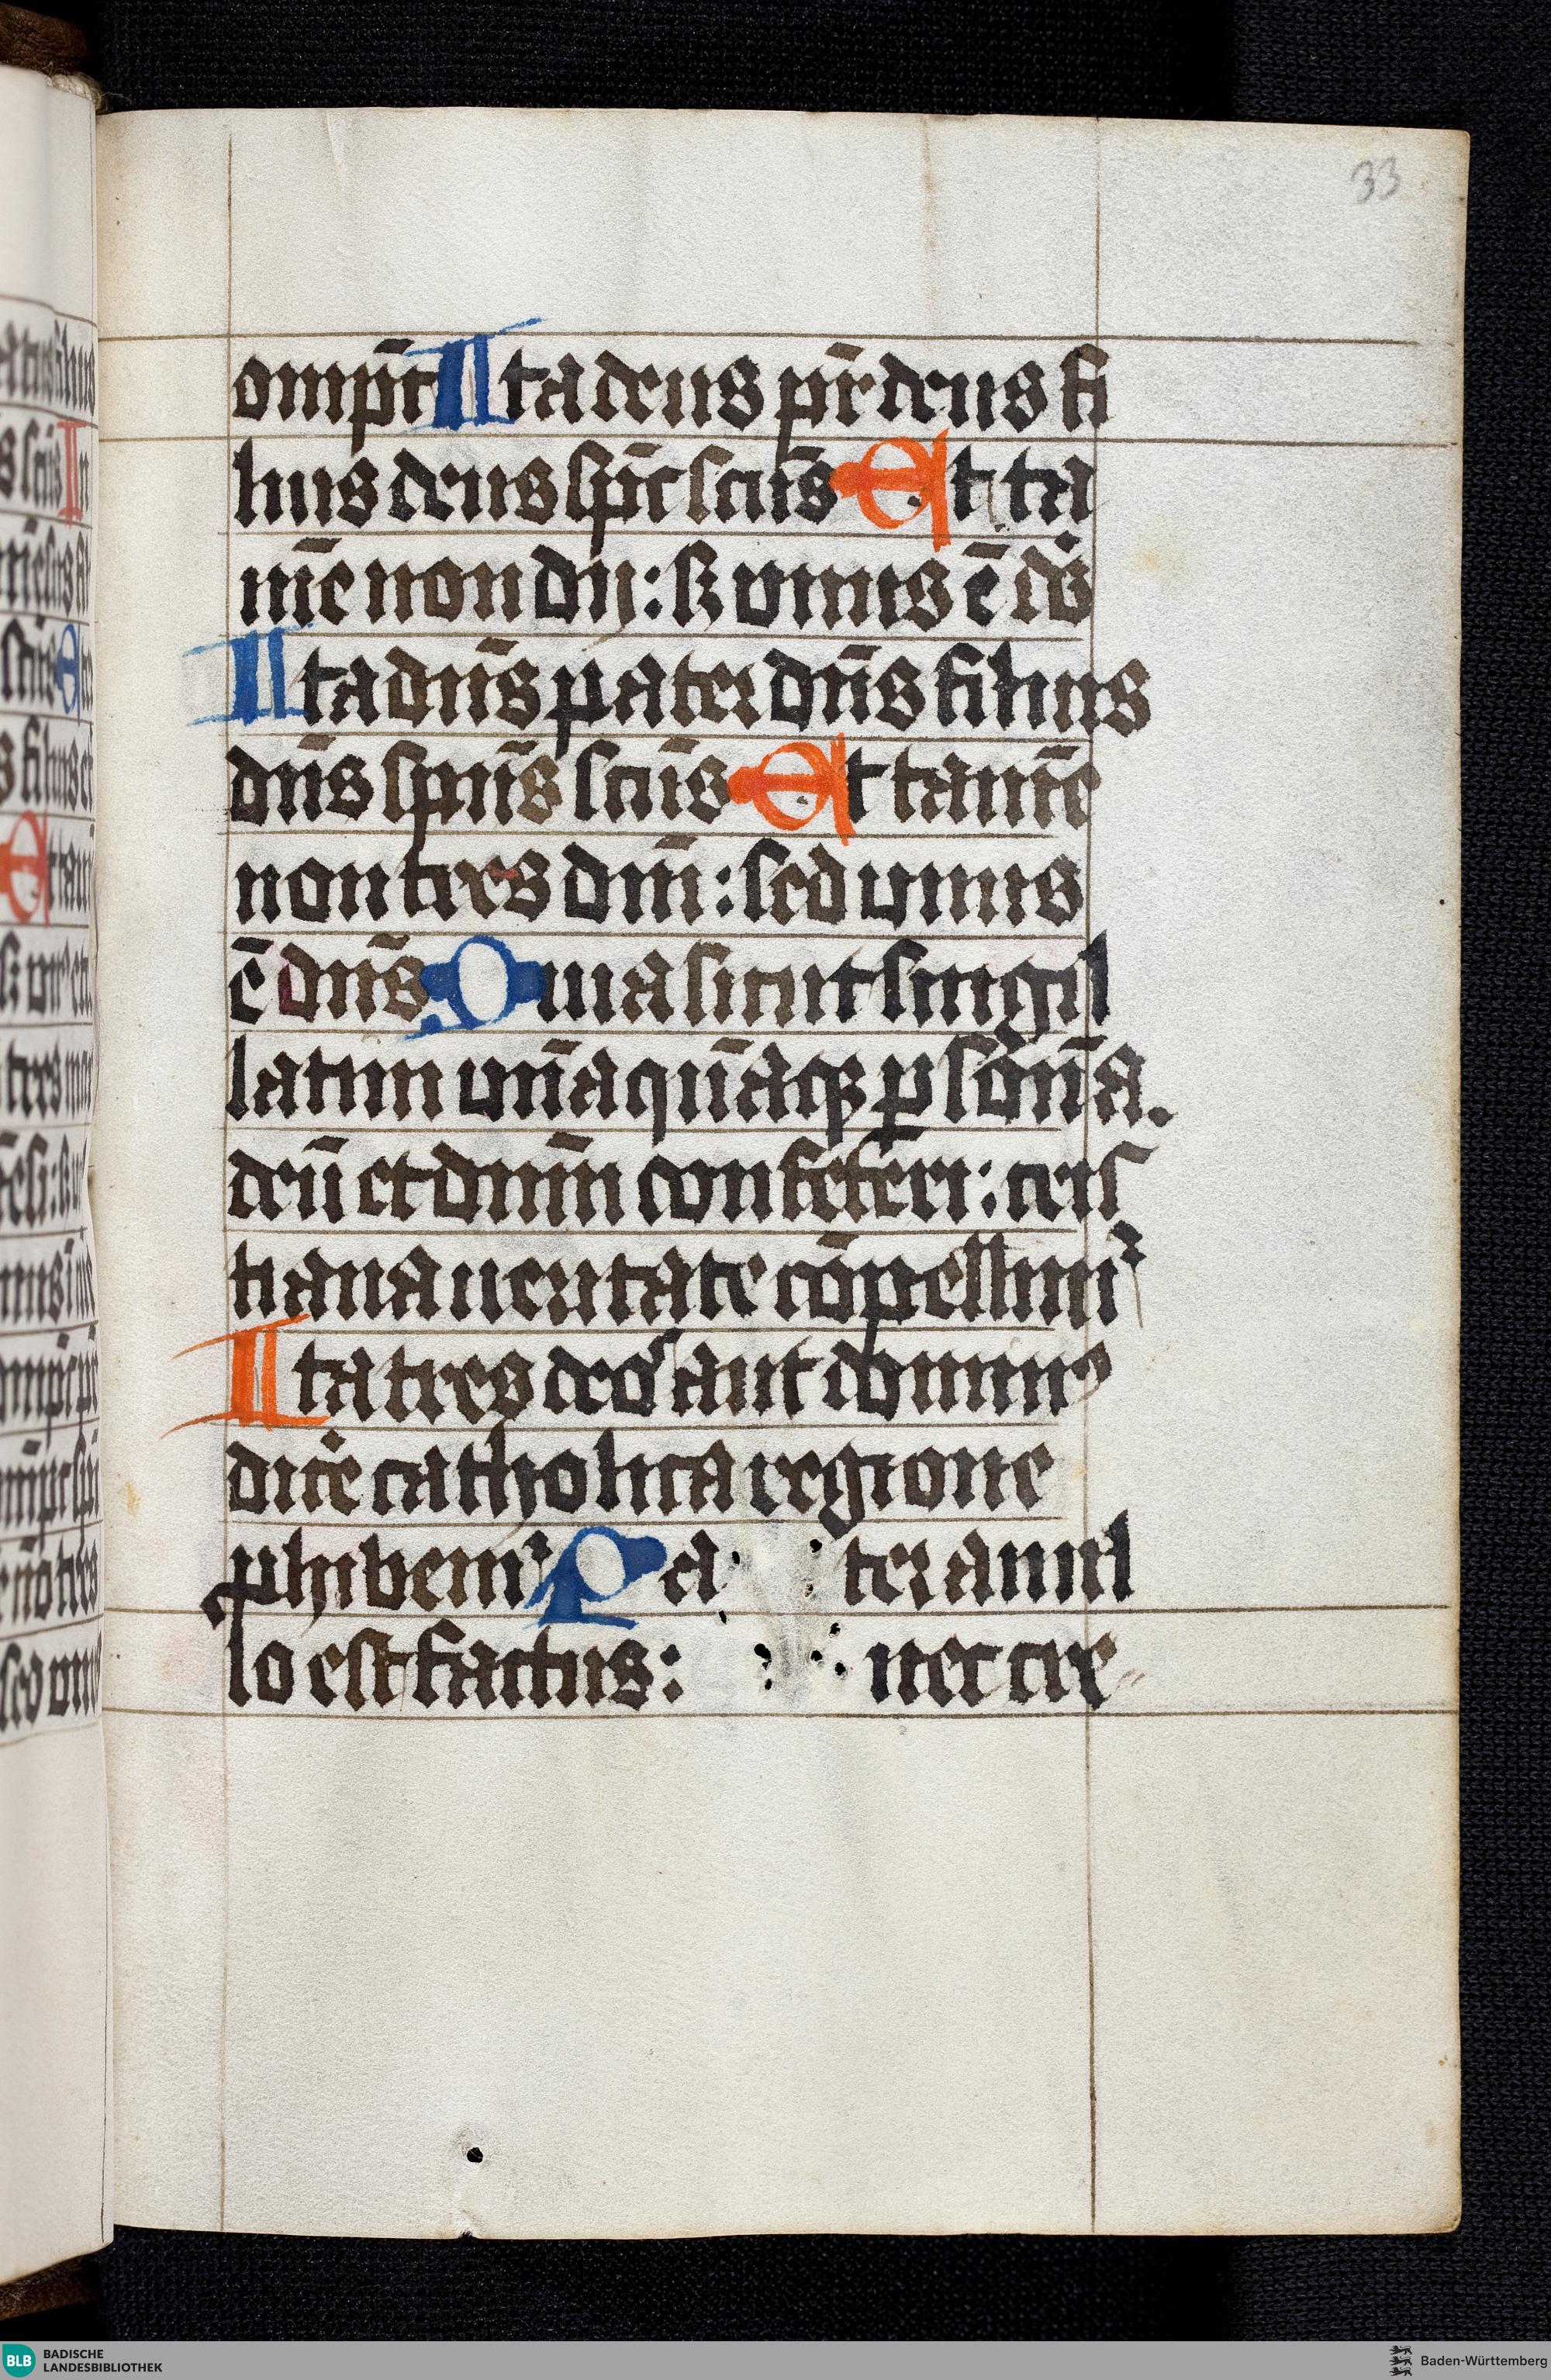 33
omp̄c Ita deus pr̄ deus fi
lius deus sp̄c sc̄us Et ta
mē non dij: sꝫ unus ē ds̄
Ita dn̄s pater dn̄s filius
dn̄s spūs sc̄us Et tamē
non tres dn̄i: sed unus
ē dn̄s Quia sicut singil
latim unā quāqꝫ ꝑsonā a.
deū et dn̄m confiteri: cris
tiana ueritate cōpellimᷣ
Ita tres deos aut dominꝰ
dicē catholica regione
ꝓhibemᷣ Pa ter anul
lo est factus: nec cre
BLB BADISCHE
LANDESBIBLIOTHEK
Baden-Württemberg